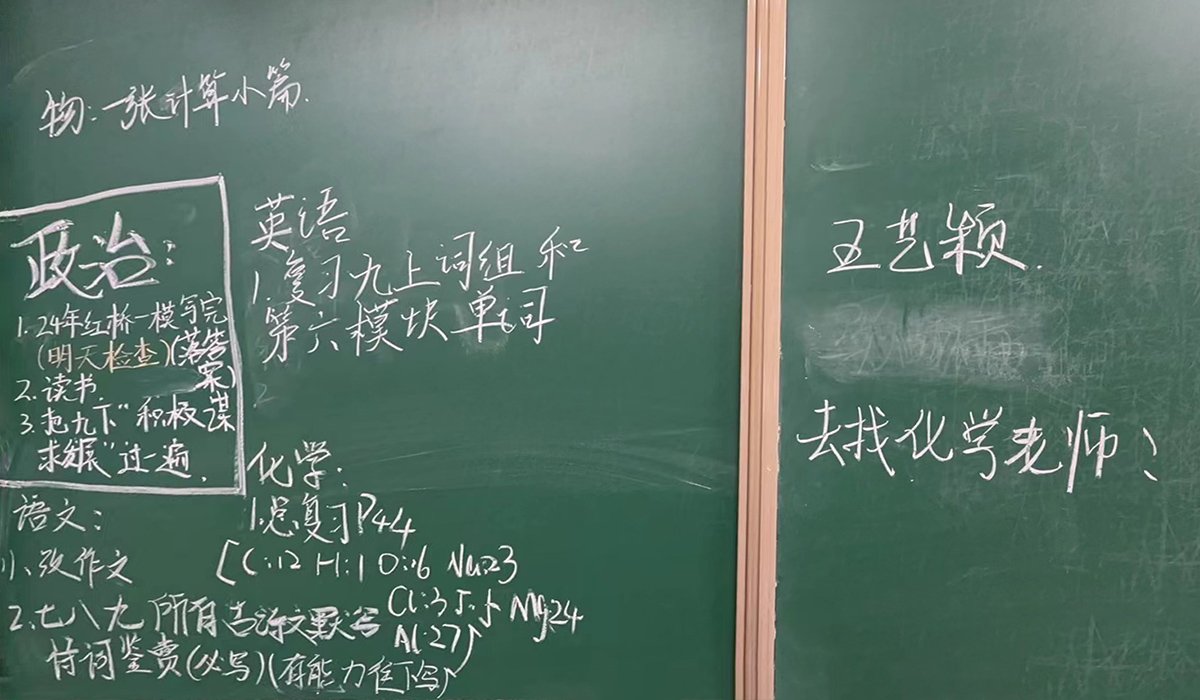 物:一张计算小篇.
政治:
1.24年红桥一模写完
(明天检查)(落答案)
2.读书.
3.把九下"积极谋
求发展"过一遍.
英语
1.复习九上词组和
第六模块单词
2
化学:
1.总复习P44
[C:12 H:1 O:16 Na:23
Cl:35.5 Mg:24
Al:27)
语文:
1、改作文
2.七八九所有古诗文默写
诗词鉴赏(必写)(有能力往下写)
王艺颖.
去找化学老师!